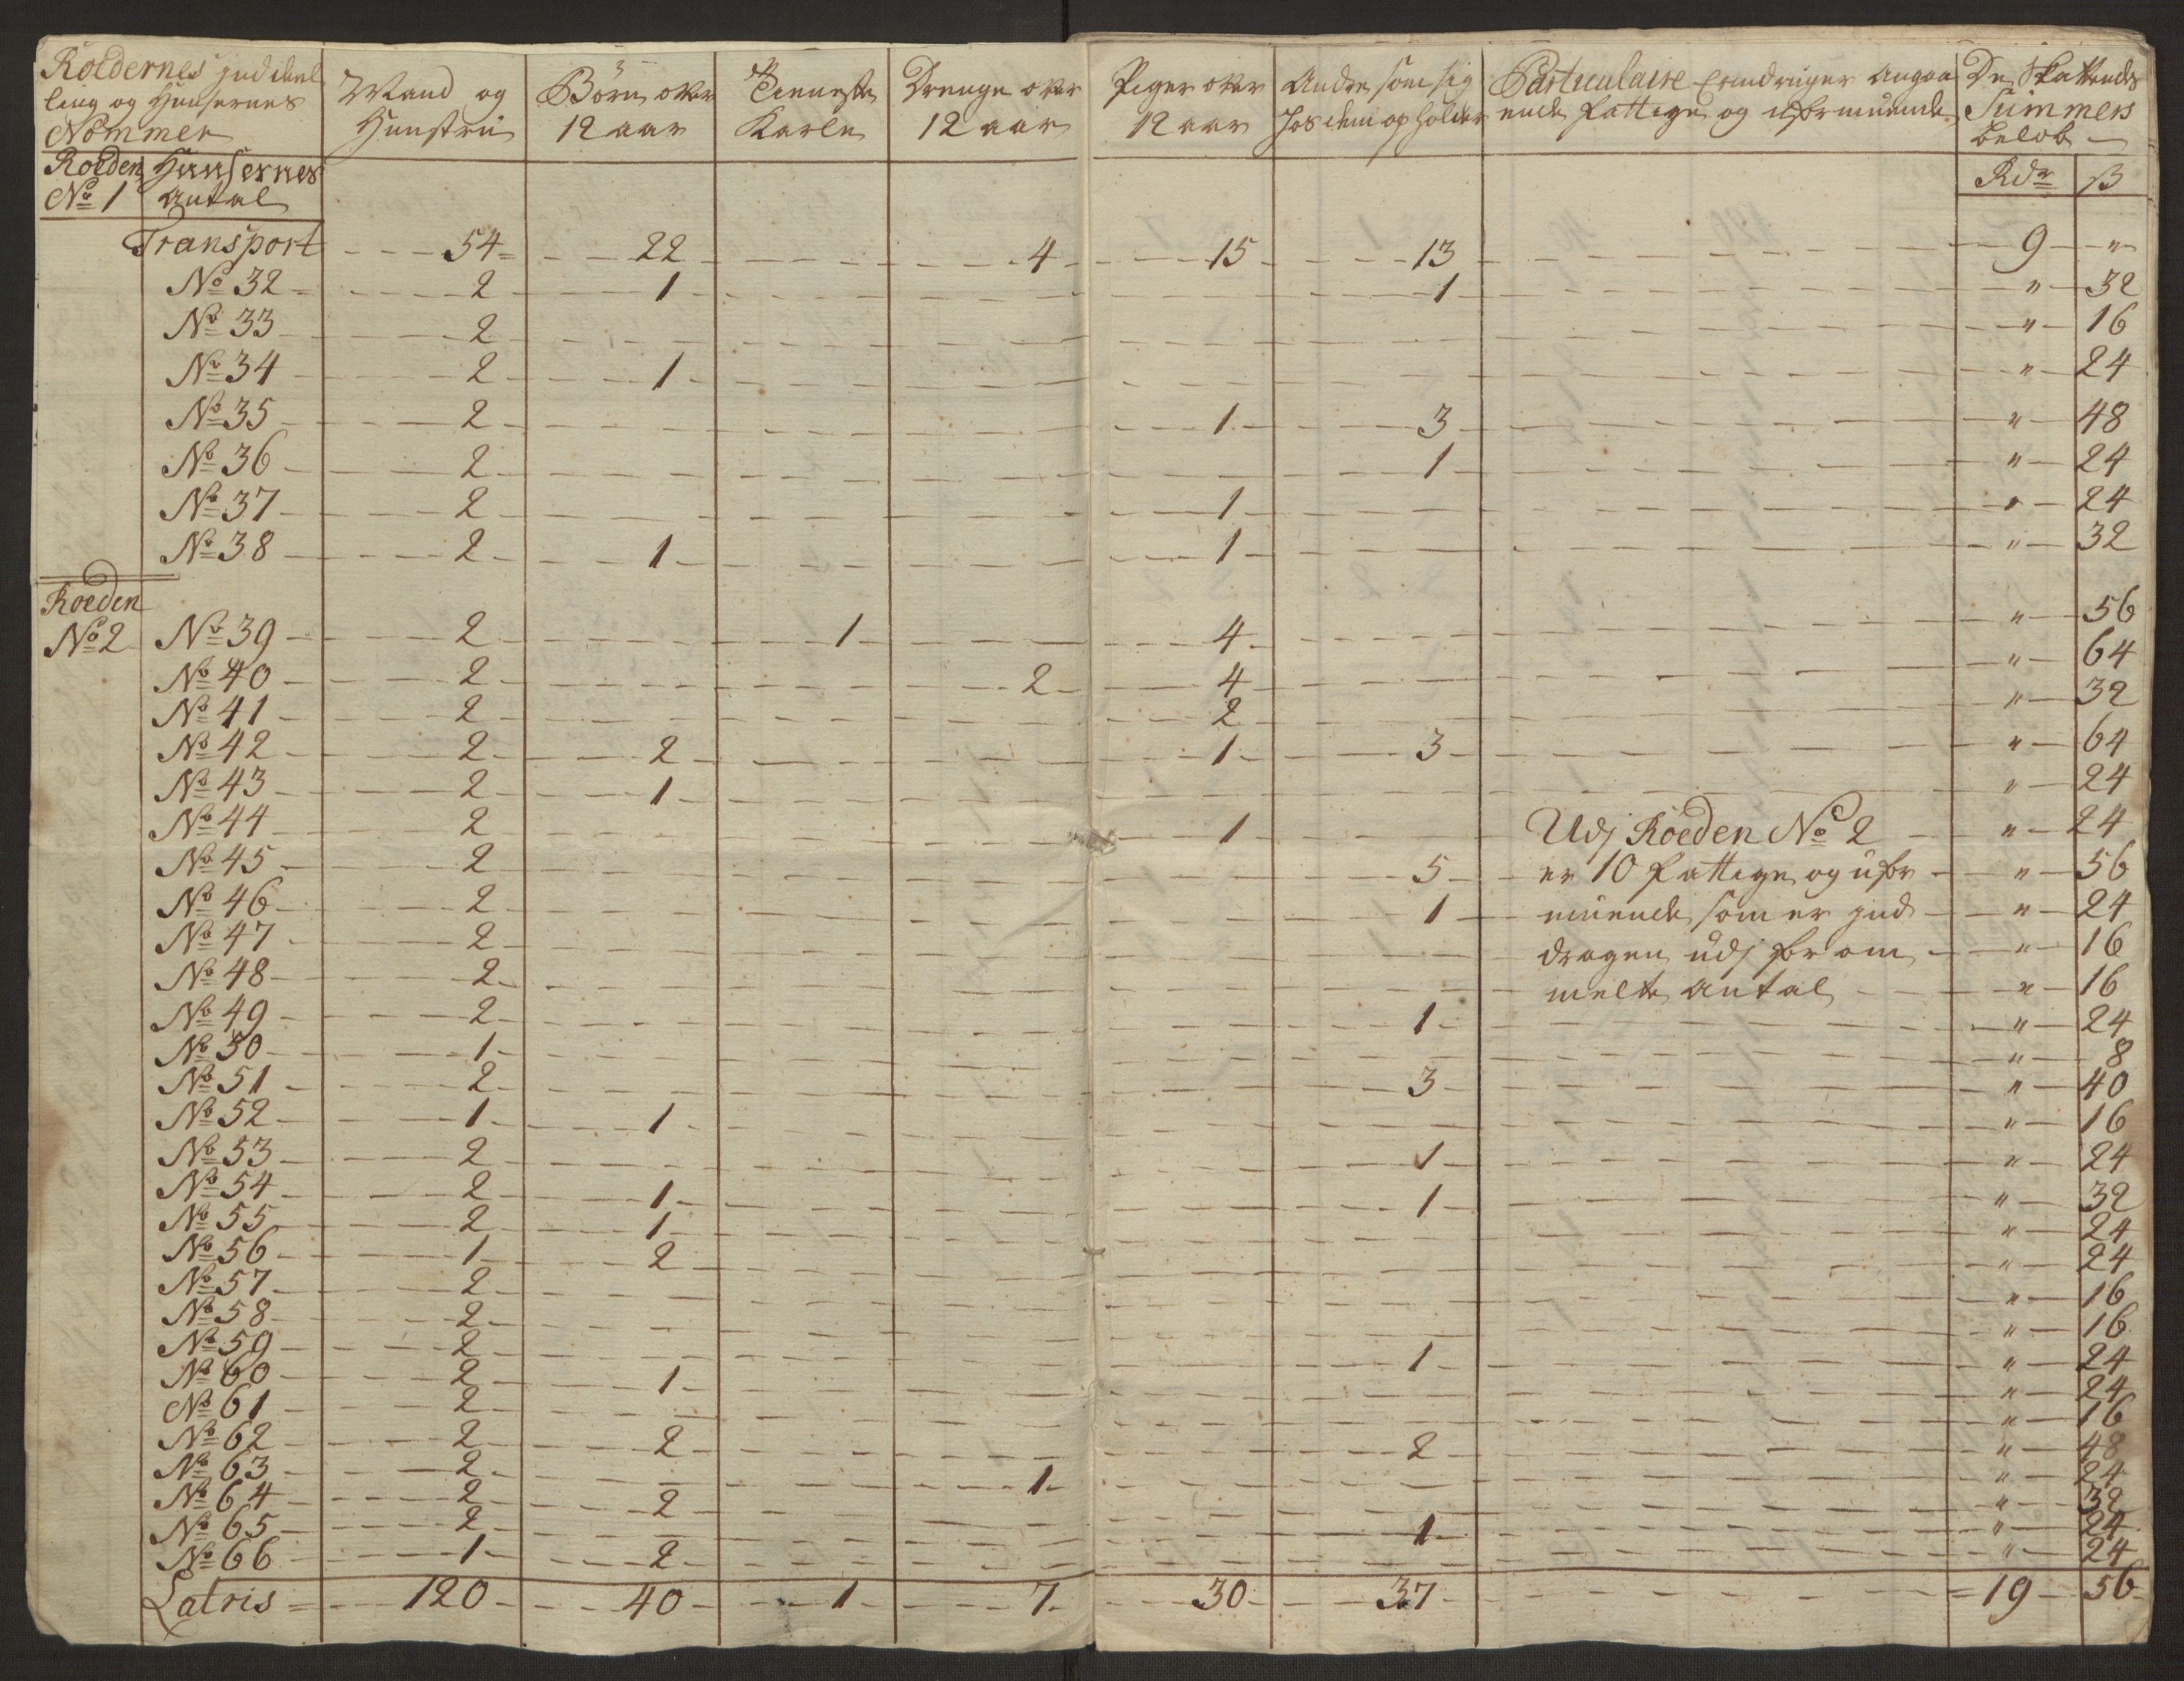 Roedernes inddeel
ling og Huusernes
Nommer
Mand og
Hunstru
Börn over
12 aar
Tieneste
Karle
Drenge over
12 aar
Piger over
12 aar
Andre som sig
hos dem opholder
Particulaire Erindringer angaa
ende fattige og uformuende
De Skattendes
Summers
belöb
Roeden Huusernes
No 1 Antal
Rdr ß
Transport 54 22 4 15 13 9 "
No 32 2 1 1 " 32
No 33 2 " 16
No 34 2 1 " 24
No 35 2 1 3 " 48
No 36 2 1 " 24
No 37 2 1 " 24
No 38 2 1 1 " 32
Roeden
No 2 No 39 2 1 4 " 56
No 40 2 2 4 " 64
No 41 2 2 " 32
No 42 2 2 1 3 " 64
No 43 2 1 " 24
No 44 2 1 Udj Roeden No 2 " 24
No 45 2 5 er 10 fattige og ufor " 56
No 46 2 1 muende som er ind " 24
No 47 2 dragen udj for om " 16
No 48 2 melte antal " 16
No 49 2 1 " 24
No 50 1 " 8
No 51 2 3 " 40
No 52 1 1 " 16
No 53 2 1 " 24
No 54 2 1 1 " 32
No 55 2 1 " 24
No 56 1 2 " 24
No 57 2 " 16
No 58 2 " 16
No 59 2 1 " 24
No 60 2 1 " 24
No 61 2 " 16
No 62 2 2 2 " 48
No 63 2 1 " 24
No 64 2 2 " 32
No 65 2 1 " 24
No 66 1 2 " 24
Latris 120 40 1 7 30 37 19 56